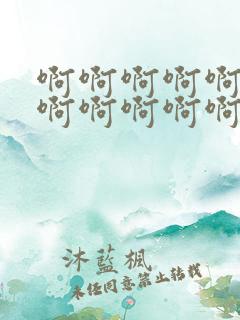 啊啊啊啊啊
啊啊啊啊啊
沐藍楓
未任同意禁止转载